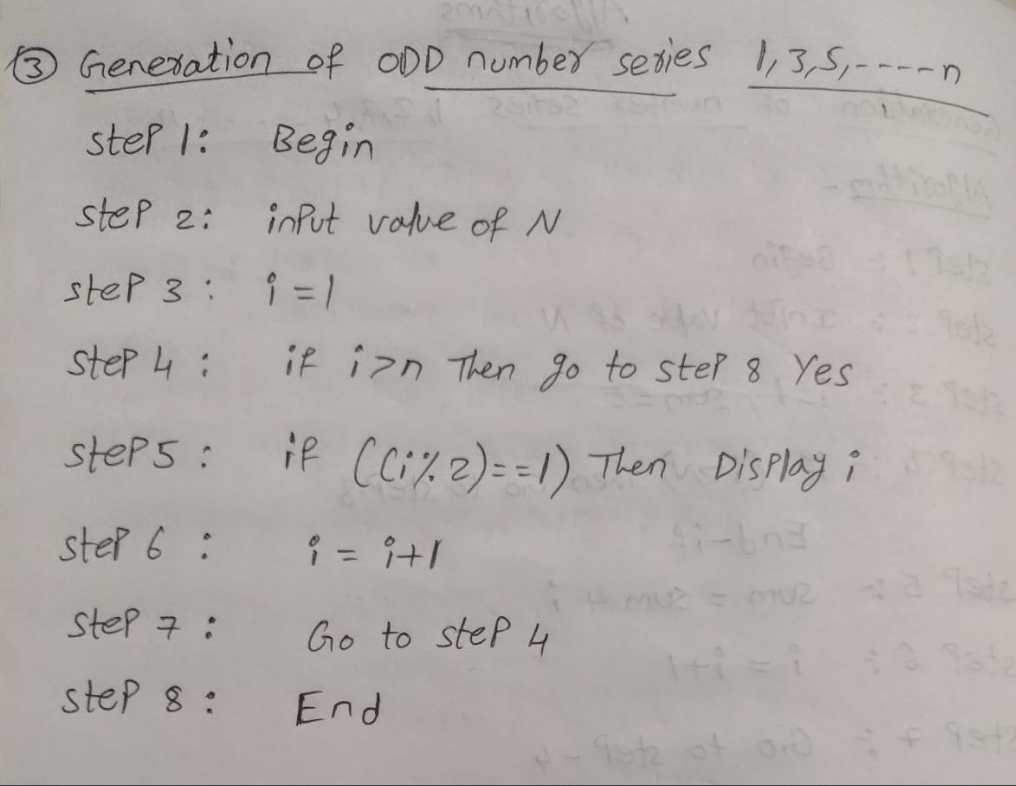 ③ Generation of ODD number series 1,3,5,----n
step 1: Begin
step 2: input value of N
step 3 : i =1
step 4 : if i>n Then go to step 8 Yes
step5 : if ((i%2)==1) Then Display i
step 6 : i = i+1
step 7 : Go to step 4
step 8 : End